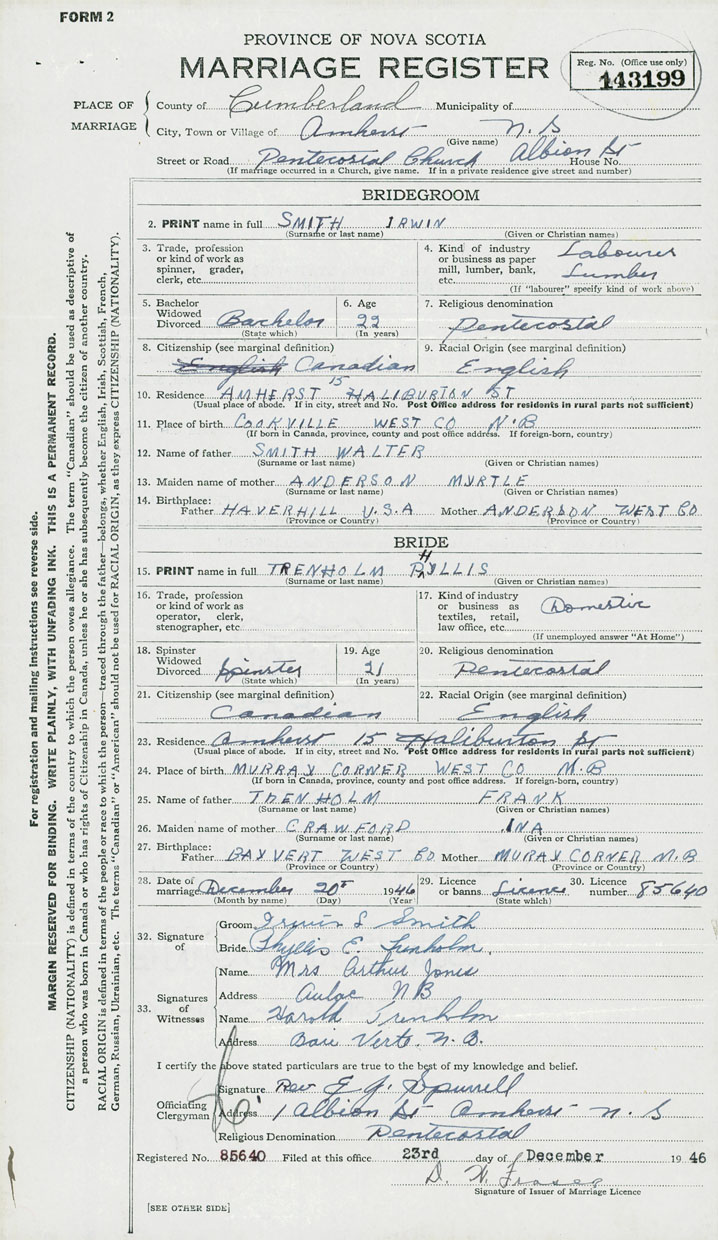 FORM 2
PROVINCE OF NOVA SCOTIA
MARRIAGE REGISTER
Reg. No. (Office use only)
143199
PLACE OF MARRIAGE
County of Cumberland Municipality of
City, Town or Village of Amherst N.S
(Give name)
Street or Road Pentecostal Church Albion St House No.
(If marriage occurred in a Church, give name. If in a private residence give street and number)
BRIDEGROOM
2. PRINT name in full SMITH IRWIN
(Surname or last name) (Given or Christian names)
3. Trade, profession or kind of work as spinner, grader, clerk, etc.
4. Kind of industry or business as paper mill, lumber, bank, etc. Labourer Lumber
(If "labourer" specify kind of work above)
5. Bachelor Widowed Divorced Bachelor
(State which)
6. Age 22
(In years)
7. Religious denomination
Pentecostal
8. Citizenship (see marginal definition)
English Canadian
9. Racial Origin (see marginal definition)
English
10. Residence AMHERST 15 HALIBURTON ST
(Usual place of abode. If in city, street and No. Post Office address for residents in rural parts not sufficient)
11. Place of birth COOKVILLE WEST CO N.B
(If born in Canada, province, county and post office address. If foreign-born, country)
12. Name of father SMITH WALTER
(Surname or last name) (Given or Christian names)
13. Maiden name of mother ANDERSON MYRTLE
(Surname or last name) (Given or Christian names)
14. Birthplace:
Father HAVERHILL U.S.A Mother ANDERSON WEST CO
(Province or Country) (Province or Country)
BRIDE
15. PRINT name in full TRENHOLM PHYLLIS
(Surname or last name) (Given or Christian names)
16. Trade, profession or kind of work as operator, clerk, stenographer, etc.
17. Kind of industry or business as textiles, retail, law office, etc. Domestic
(If unemployed answer "At Home")
18. Spinster Widowed Divorced Spinster
(State which)
19. Age 21
(In years)
20. Religious denomination
Pentecostal
21. Citizenship (see marginal definition)
Canadian
22. Racial Origin (see marginal definition)
English
23. Residence Amherst 15 Haliburton St
(Usual place of abode. If in city, street and No. Post Office address for residents in rural parts not sufficient)
24. Place of birth MURRAY CORNER WEST CO M.B
(If born in Canada, province, county and post office address. If foreign-born, country)
25. Name of father TRENHOLM FRANK
(Surname or last name) (Given or Christian names)
26. Maiden name of mother CRAWFORD INA
(Surname or last name) (Given or Christian names)
27. Birthplace:
Father BAY VERT WEST CO Mother MURAY CORNER M.B
(Province or Country) (Province or Country)
28. Date of marriage December 20th 1946
(Month by name) (Day) (Year)
29. Licence or banns Licence
(State which)
30. Licence number 85640
32. Signature of
Groom Irwin L Smith
Bride Phyllis E. Trenholm
33. Signatures of Witnesses
Name Mrs Arthur Jones
Address Aulac NB
Name Harold Trenholm
Address Baie Verte, N.B.
I certify the above stated particulars are true to the best of my knowledge and belief.
Officiating Clergyman
Signature Rev E. G. Spurrell
Address 1 Albion St Amherst N.S
Religious Denomination Pentecostal
Registered No. 85640 Filed at this office 23rd day of December 1946
D. W. Fraser
Signature of Issuer of Marriage Licence
[SEE OTHER SIDE]
For registration and mailing instructions see reverse side.
MARGIN RESERVED FOR BINDING. WRITE PLAINLY, WITH UNFADING INK. THIS IS A PERMANENT RECORD.
CITIZENSHIP (NATIONALITY) is defined in terms of the country to which the person owes allegiance. The term "Canadian" should be used as descriptive of
a person who was born in Canada or who has rights of Citizenship in Canada, unless he or she has subsequently become the citizen of another country.
RACIAL ORIGIN is defined in terms of the people or race to which the person—traced through the father—belongs, whether English, Irish, Scottish, French,
German, Russian, Ukrainian, etc. The terms "Canadian" or "American" should not be used for RACIAL ORIGIN, as they express CITIZENSHIP (NATIONALITY).